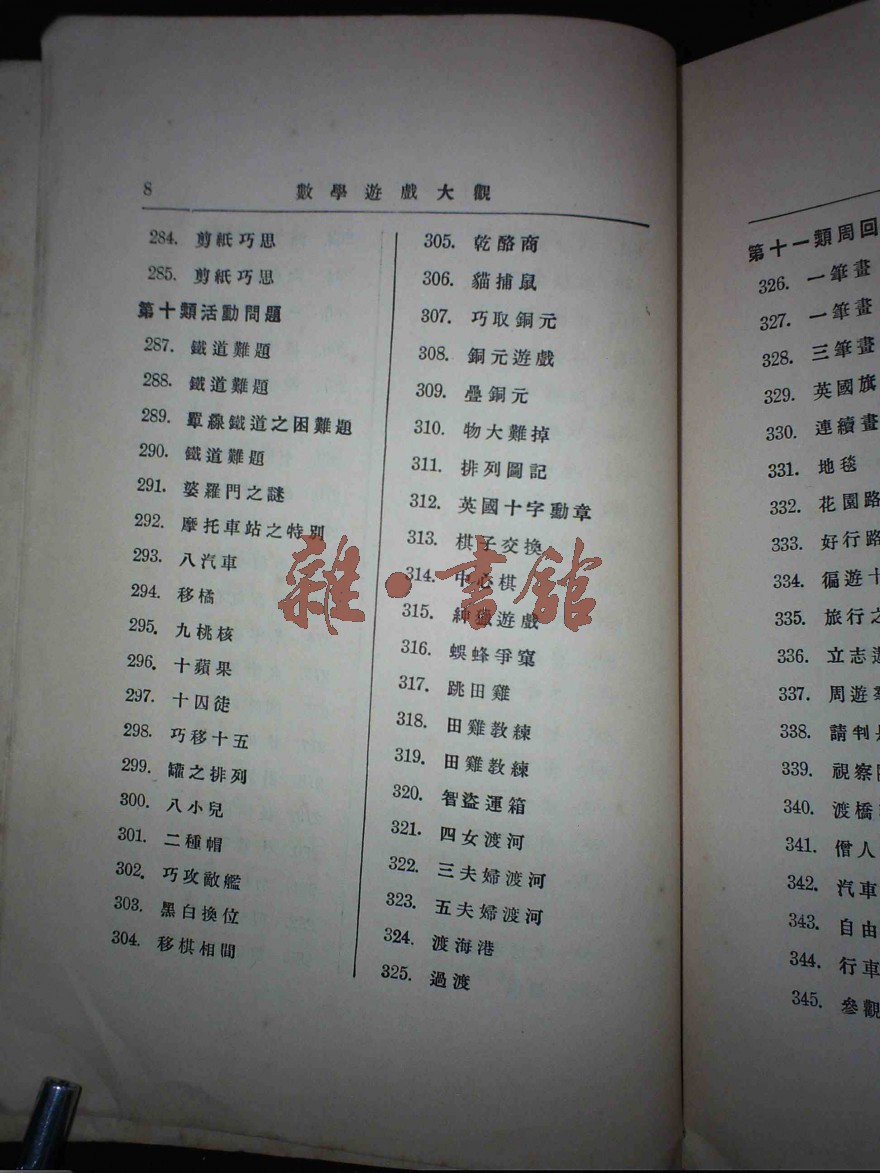 8 數學遊戲大觀
284. 剪紙巧思
285. 剪紙巧思
第十類活動問題
287. 鐵道難題
288. 鐵道難題
289. 單線鐵道之困難題
290. 鐵道難題
291. 婆羅門之謎
292. 摩托車站之特別
293. 八汽車
294. 移橘
295. 九桃核
296. 十蘋果
297. 十囚徒
298. 巧移十五
299. 罐之排列
300. 八小兒
301. 二種帽
302. 巧攻敵艦
303. 黑白換位
304. 移棋相間
305. 乾酪商
306. 貓捕鼠
307. 巧取銅元
308. 銅元遊戲
309. 疊銅元
310. 物大難掉
311. 排列圖記
312. 英國十字勳章
313. 棋子交換
314. 中心棋
315. 紳士遊戲
316. 蜈蜂爭窠
317. 跳田雞
318. 田雞教練
319. 田雞教練
320. 智盜運箱
321. 四女渡河
322. 三夫婦渡河
323. 五夫婦渡河
324. 渡海港
325. 過渡
雜·書館
第十一類周回
326. 一筆畫
327. 一筆畫
328. 三筆畫
329. 英國旗
330. 連續畫
331. 地毯
332. 花園路
333. 好行路
334. 徧遊十
335. 旅行之
336. 立志遊
337. 周遊
338. 請判
339. 視察
340. 渡橋
341. 僧人
342. 汽車
343. 自由
344. 行車
345. 參觀